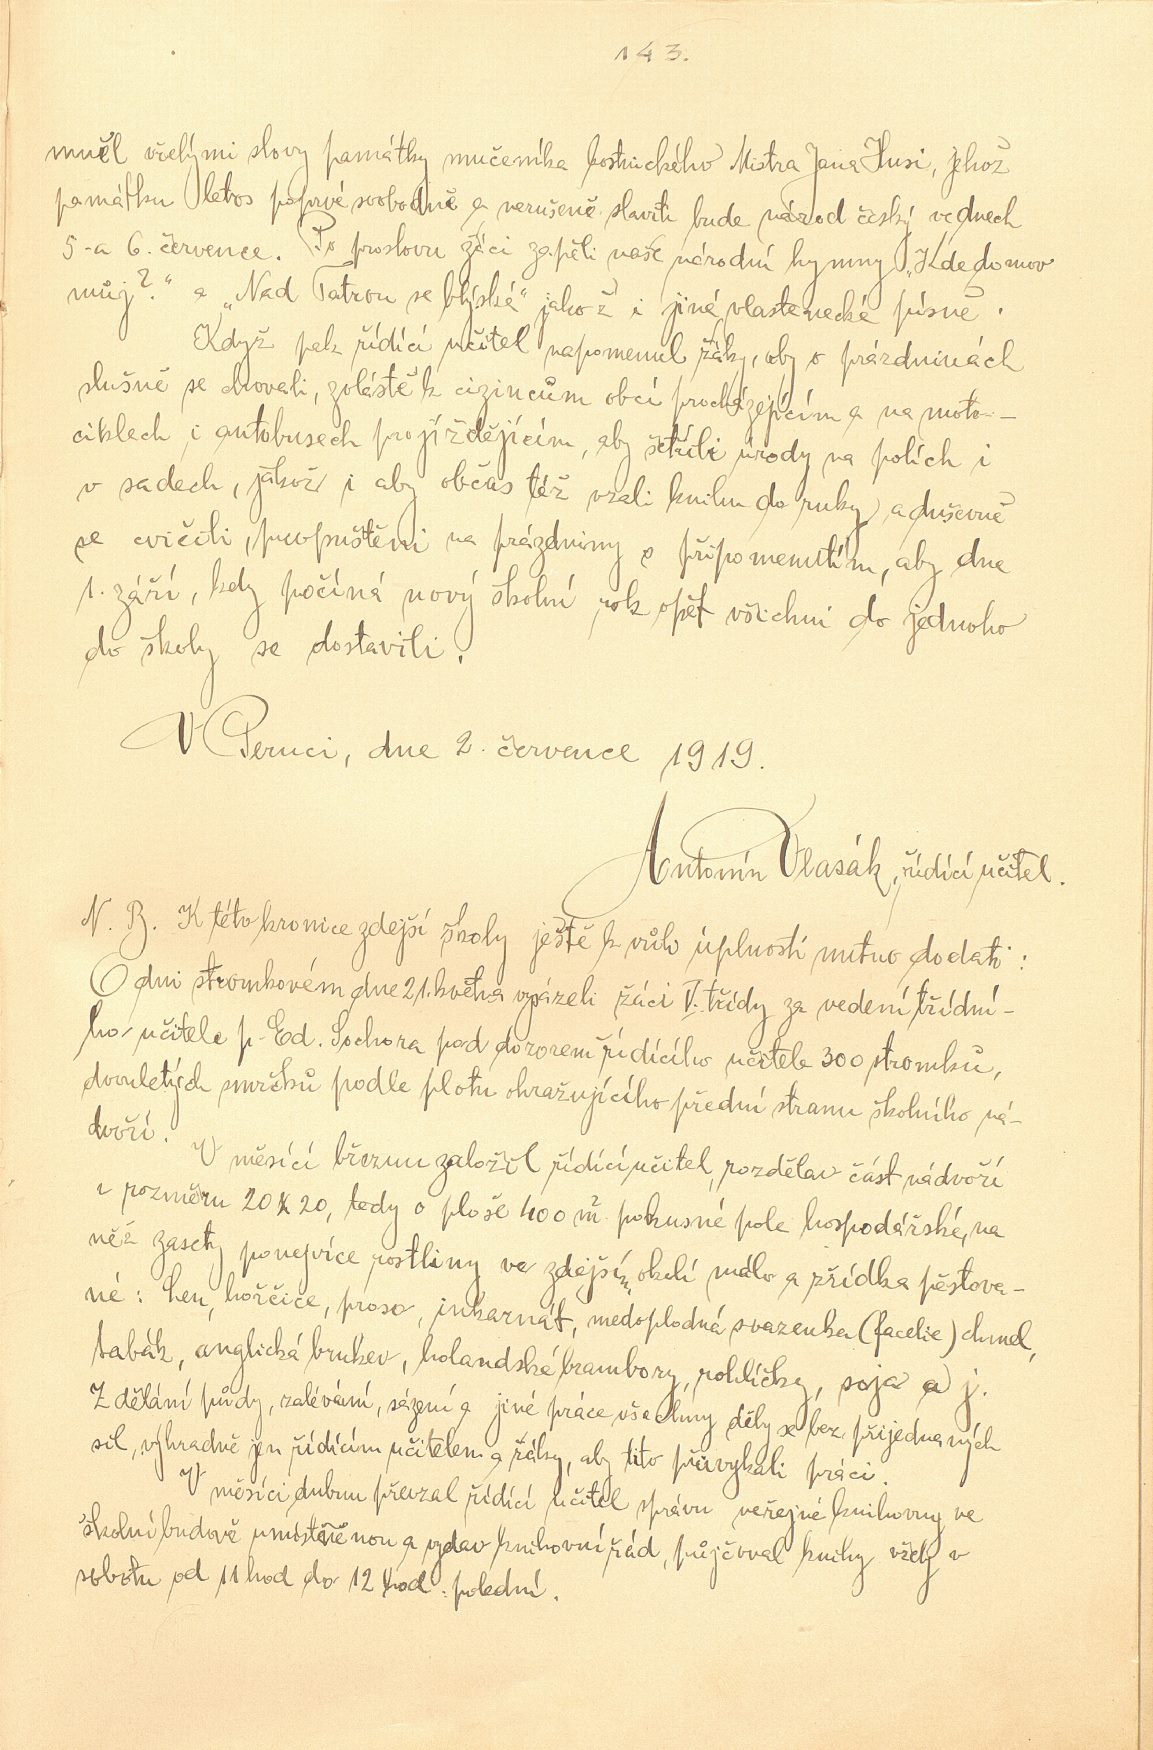 143.
mněl vřelými slovy památky mučeníka kostnického Mistra Jana Husi, jehož
památku letos poprvé svobodně a nerušeně slaviti bude národ český ve dnech
5. a 6. července. Po proslovu žáci zapěli naše národní hymny „Kde domov
můj?" a „Nad Tatrou se blýská" jakož i jiné vlastenecké písně.
Když pak řídící učitel napomenul žáky, aby o prázdninách
slušně se chovali, zvláště k cizincům obcí procházejícím a na moto-
ciklech i autobusech projíždějícím, aby šetřili úrody na polích i
v sadech, jakož i aby občas též vzali knihu do ruky a duševně
se cvičili, propuštěni na prázdniny s připomenutím, aby dne
1. září, kdy počíná nový školní rok opět všichni do jednoho
do školy se dostavili.
V Peruci, dne 2. července 1919.
Antonín Vlasák, řídící učitel.
N. B. K této kronice zdejší školy ještě k vůli úplnosti nutno dodati:
O dni stromkovém dne 21. května vysázeli žáci V. třídy za vedení třídní-
ho učitele p. Ed. Sochora pod dozorem řídícího učitele 300 stromků,
dvouletých smrčků podle plotu ohražujícího přední stranu školního ná-
dvoří.
V měsíci březnu založil řídící učitel, rozdělav část nádvoří
v rozměru 20 x 20, tedy o ploše 400 m² pokusné pole hospodářské, na
něž zasety ponejvíce rostliny ve zdejším okolí málo a zřídka pěstova-
né: len, hořčice, proso, inkarnát, medoplodná svazenka (facelie) chmel,
tabák, anglická brukev, holandské brambory, rohlíčky, soja a j.
Zdělání půdy, zalévání, sázení a jiné práce všechny děly se bez přijednaných
sil, výhradně jen řídícím učitelem a žáky, aby tito přivykali práci.
V měsíci dubnu převzal řídící učitel správu veřejné knihovny ve
školní budově umístěnou a vydav knihovní řád, půjčoval knihy vždy v
sobotu od 11 hod do 12 hod. polední.